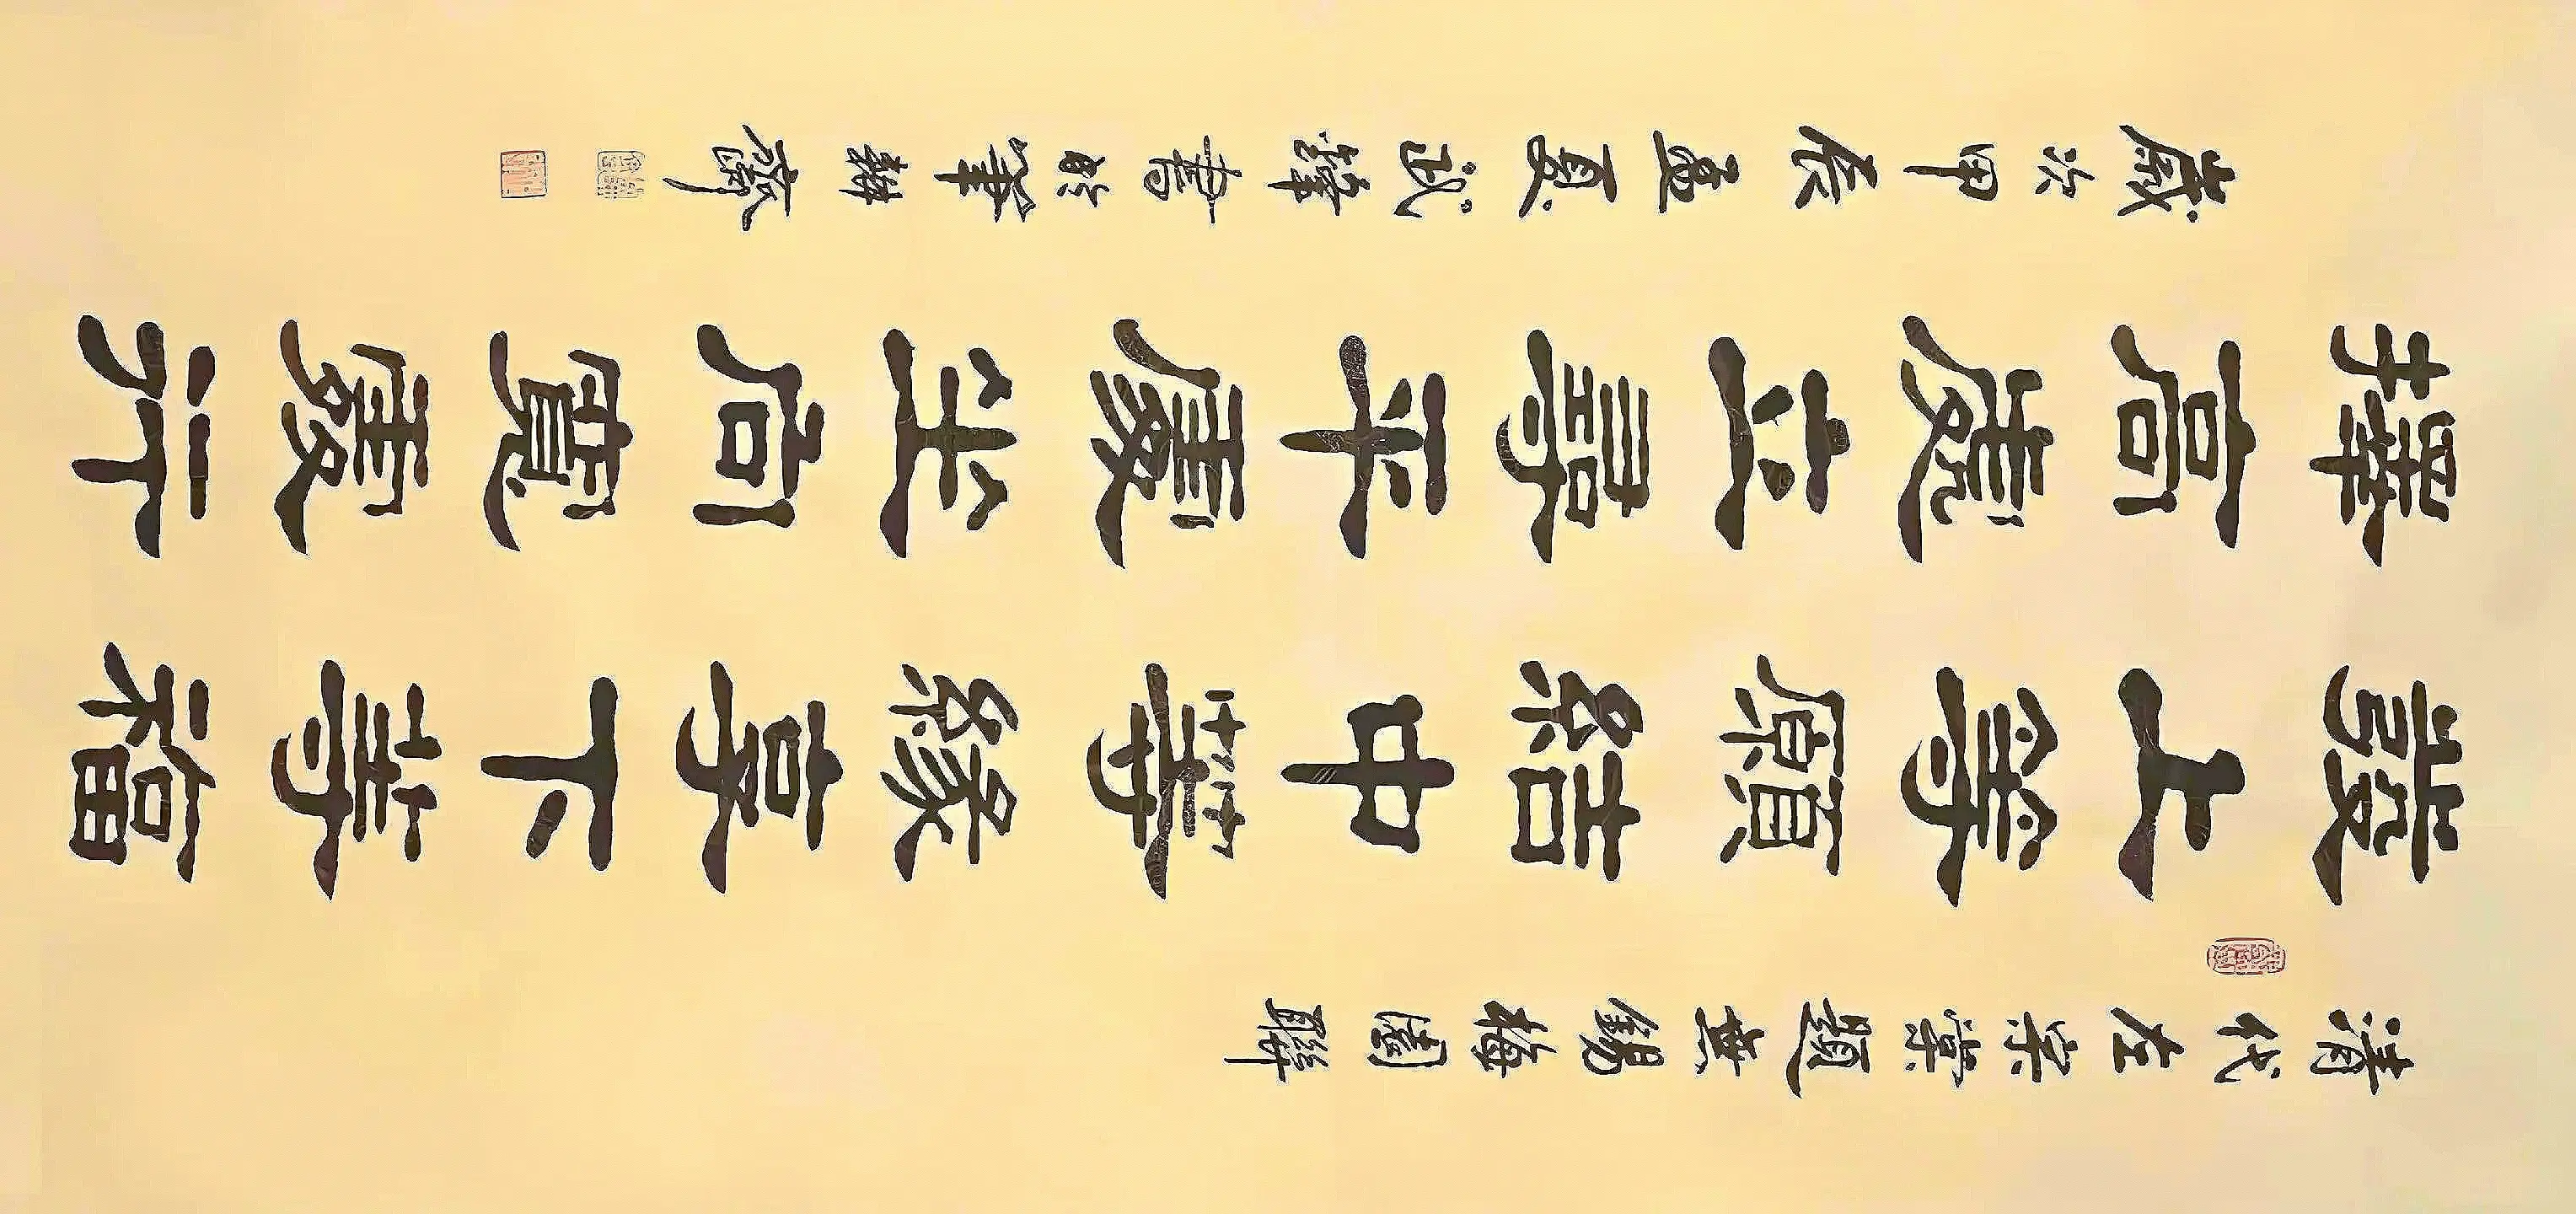 清代左宗棠題無錫梅園聯
發上等願結中等緣享下等福
擇高處立尋平處坐向寬處行
歲次甲辰孟夏書於筆耕齋